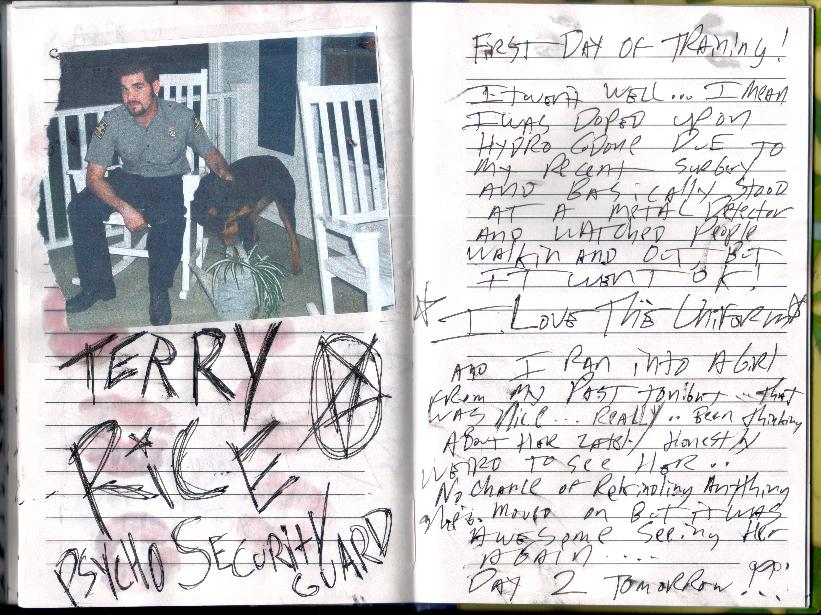 TERRY
RICE
PSYCHO SECURITY GUARD
FIRST DAY OF TRAINING!
IT WENT WELL... I MEAN
I WAS DOPED UP ON
HYDROCODONE DUE TO
MY RECENT SURGERY
AND BASICALLY STOOD
AT A METAL Detector
AND WATCHED PEOPLE
WALK IN AND OUT, BUT
IT WENT OK!
I LOVE THE UNIFORM
AND I RAN INTO A GIRL
FROM MY PAST TONIGHT... THAT
WAS NICE... REALLY.. BEEN THINKING
ABOUT HER LATELY HONESTLY
WEIRD TO SEE HER..
NO CHANCE OF REKINDLING ANYTHING
SHE'S MOVED ON BUT IT WAS
AWESOME SEEING HER
AGAIN....
DAY 2 TOMORROW!!...